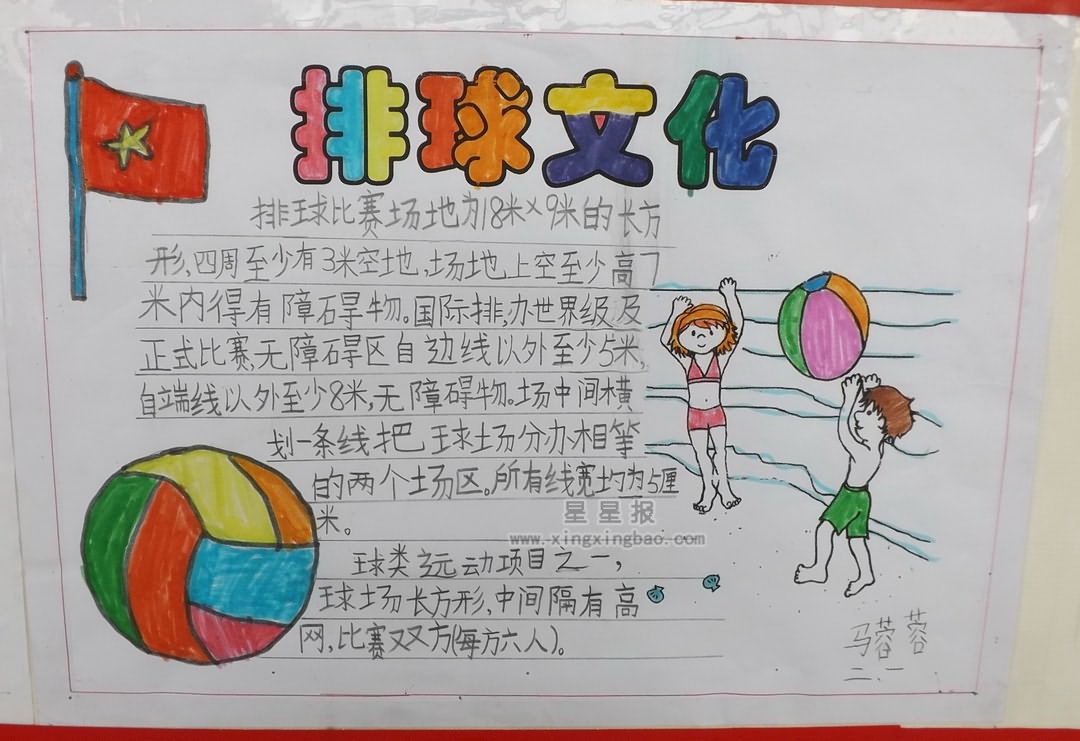 排球文化
排球比赛场地为18米×9米的长方
形,四周至少有3米空地,场地上空至少高7
米内得有障碍物。国际排,办世界级及
正式比赛,无障碍区自边线以外至少5米,
自端线以外至少8米,无障碍物。场中间横
划一条线把球场分办相等
的两个场区。所有线宽均为5厘
米。
星星报
www.xingxingbao.com
球类远动项目之一,
球场长方形,中间隔有高
网,比赛双方(每方六人)。
马蓉蓉
二、一